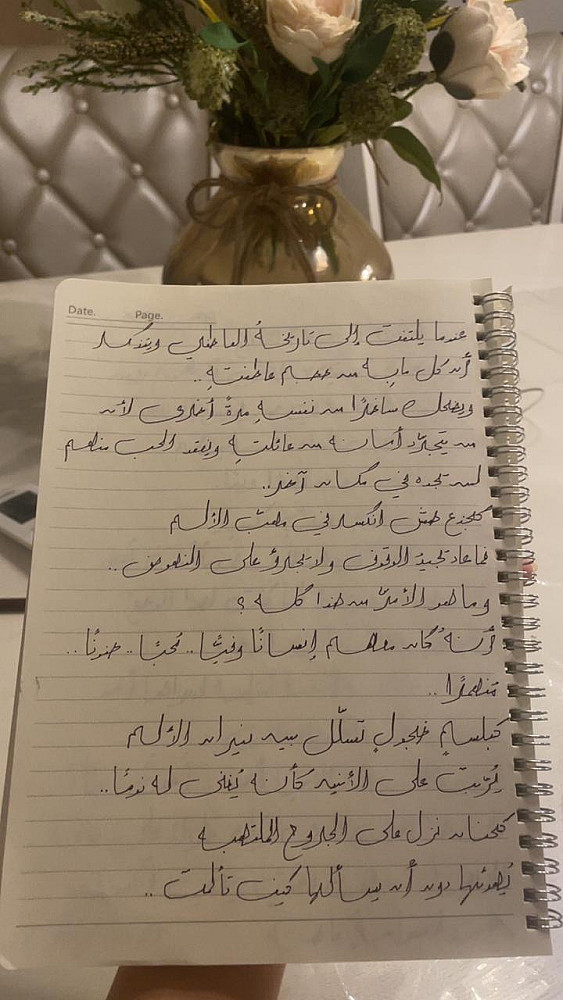 Date.
Page.
عندما يلتفت إلى تاريخهُ العاطفي ويتذكر
أن كل ما به من حطام عاطفتهِ..
ويضحك ساخرًا من نفسهِ مرةً أخرى لأن
من يتجرّد أمانه من عائلتهِ ويفقد الحب منهم
لن تجده في مكان آخر..
كجذع هش انكسر في مهبّ الألم
فما عاد يجيد الوقوف ولا يجرؤ على النهوض..
وما هو الأمرّ من هذا كله؟
أنهُ كان معهم إنسانًا وفيًّا.. مُحبًا.. حنونًا..
منهمرًا..
كبلسمٍ خجولٍ تسلّل بين نيران الألم
يُربّت على الأنين كأنه يُغني له نومًا..
كحنان نزل على الجروح الملتهبه
يُهدئها دون أن يسألها كيف تألمت..